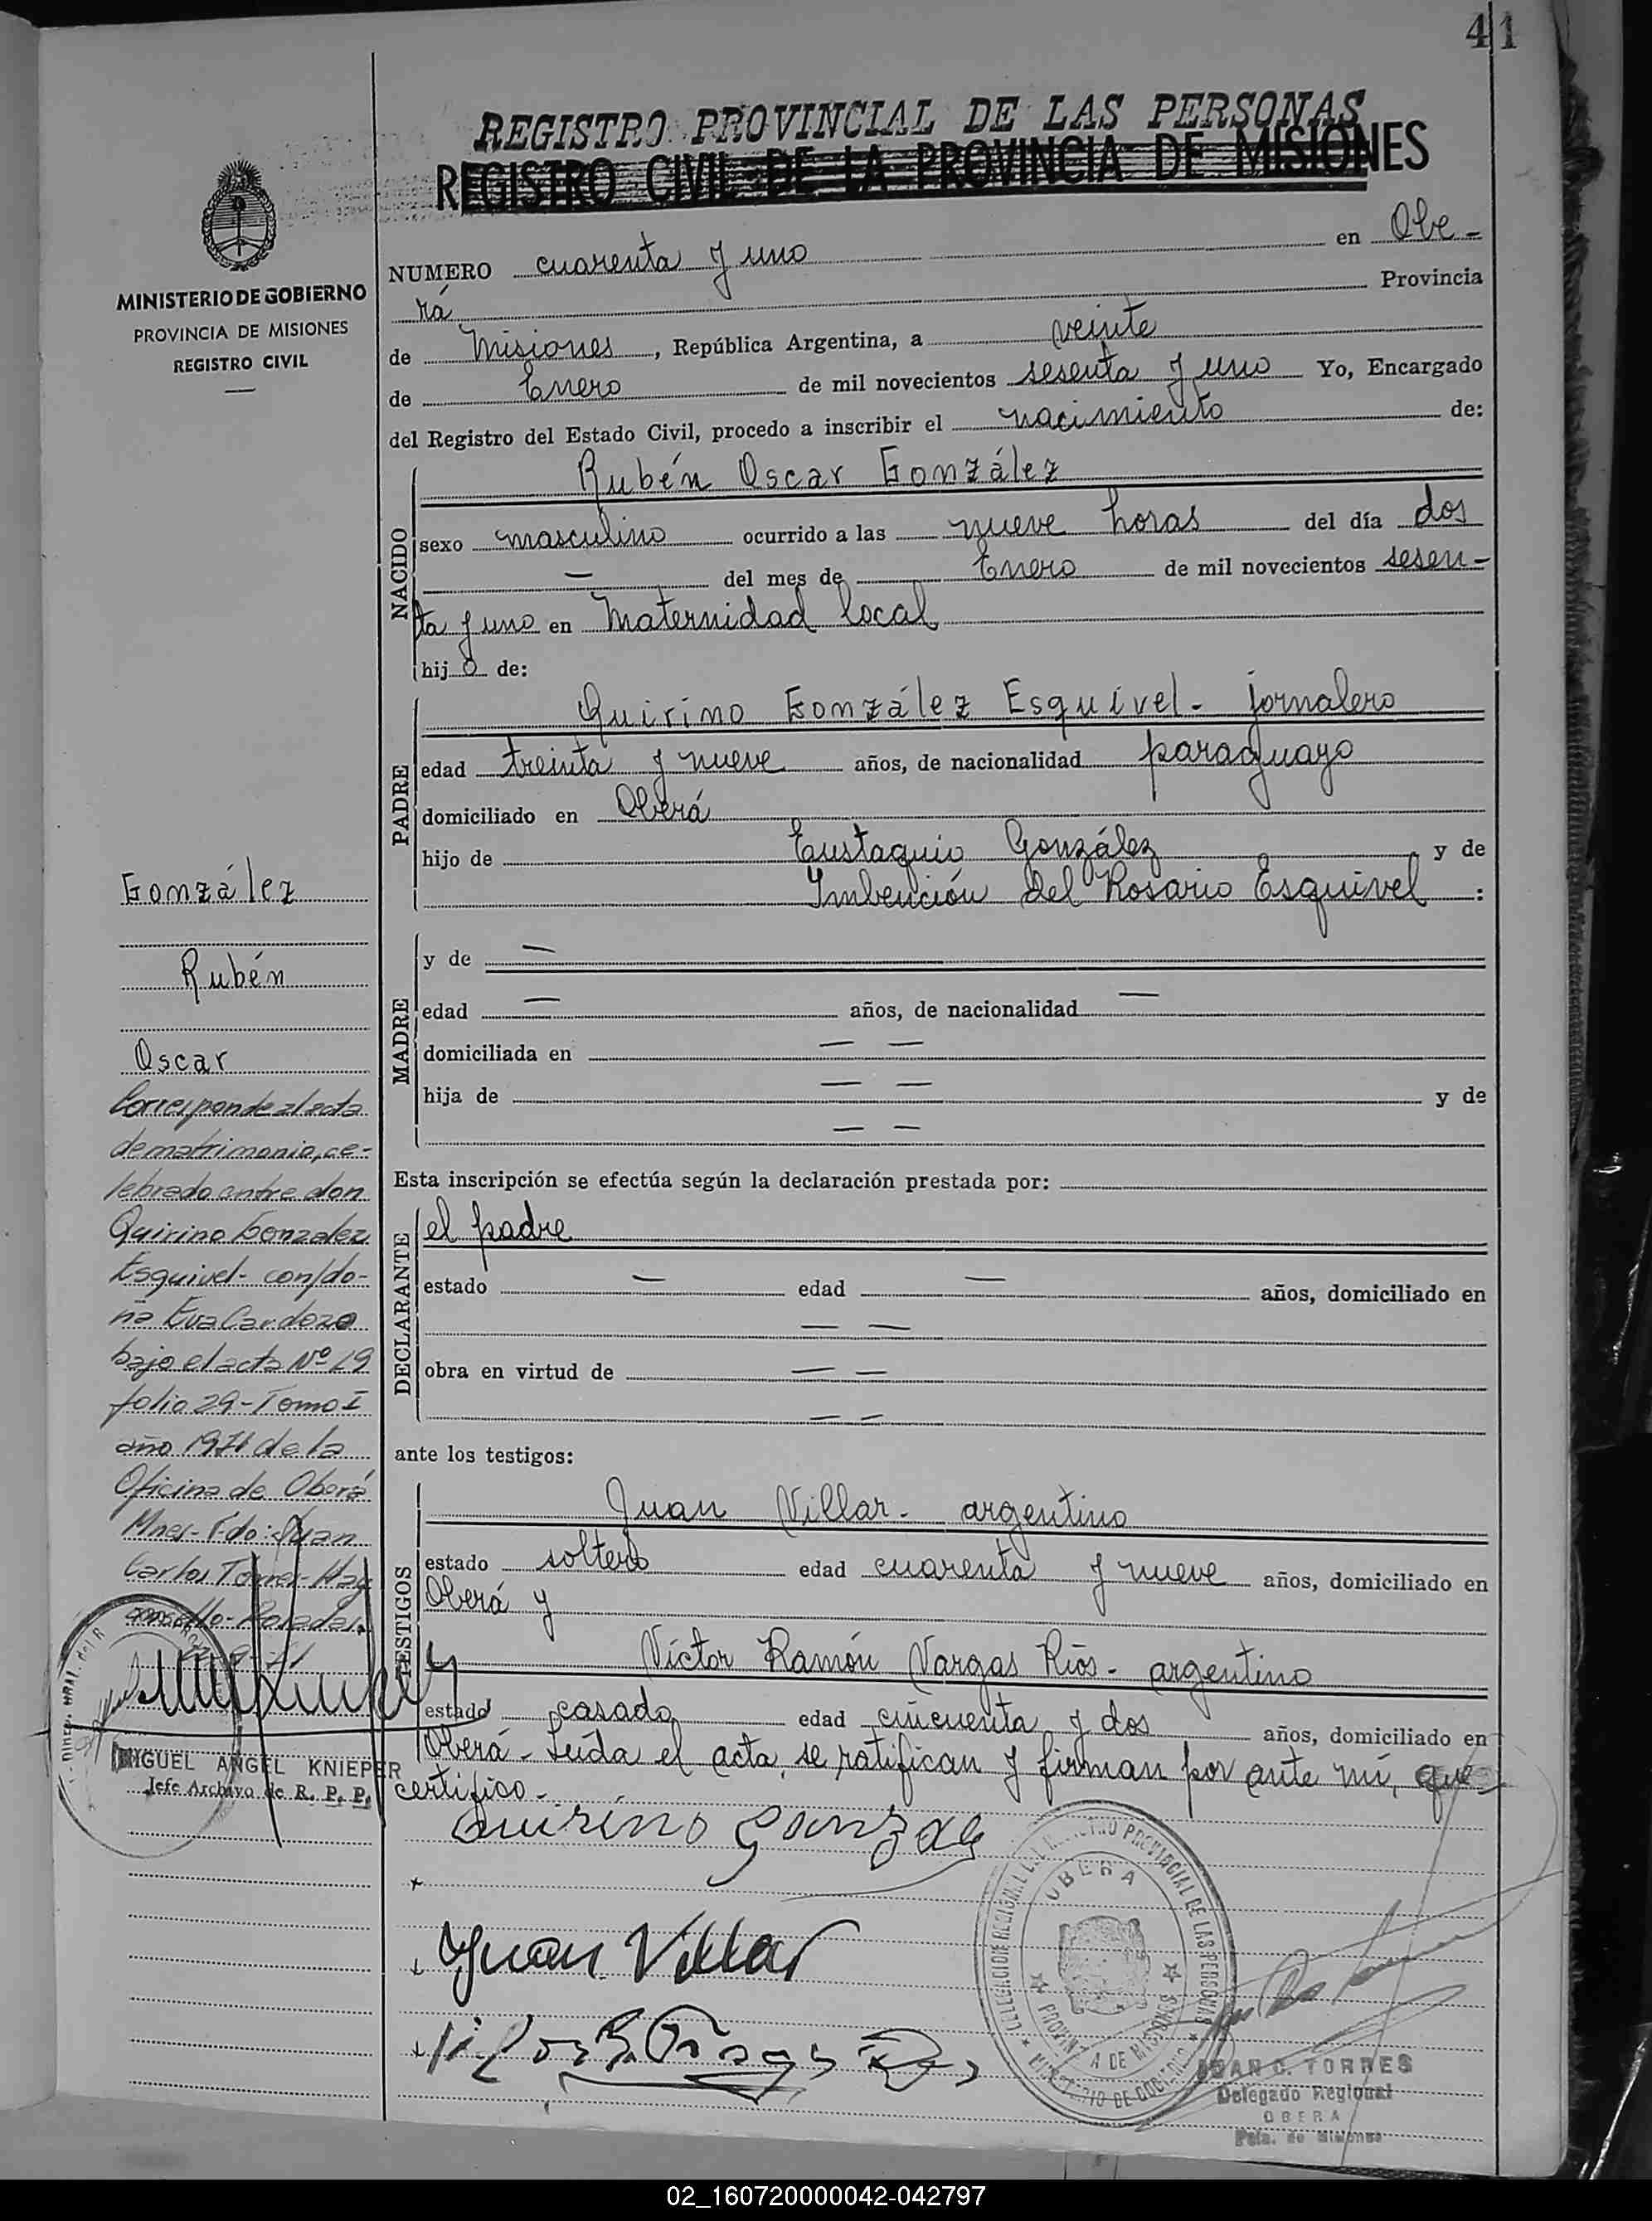 41
REGISTRO PROVINCIAL DE LAS PERSONAS
REGISTRO CIVIL DE LA PROVINCIA DE MISIONES
MINISTERIO DE GOBIERNO
PROVINCIA DE MISIONES
REGISTRO CIVIL
NUMERO cuarenta y uno en Obe-
rá Provincia
de Misiones, República Argentina, a veinte
de Enero de mil novecientos sesenta y uno Yo, Encargado
del Registro del Estado Civil, procedo a inscribir el nacimiento de:
NACIDO
Rubén Oscar González
sexo masculino ocurrido a las nueve horas del día dos
— del mes de Enero de mil novecientos sesen-
ta y uno en Maternidad local
hij o de:
PADRE
Quirino González Esquivel - jornalero
edad treinta y nueve años, de nacionalidad paraguayo
domiciliado en Oberá
hijo de Eustaquio González y de
Imbención del Rosario Esquivel :
MADRE
y de —
edad — años, de nacionalidad —
domiciliada en — —
hija de — — y de
— —
Esta inscripción se efectúa según la declaración prestada por:
DECLARANTE
el padre
estado — edad — años, domiciliado en
— —
obra en virtud de — —
— —
ante los testigos:
TESTIGOS
Juan Villar - argentino
estado soltero edad cuarenta y nueve años, domiciliado en
Oberá y
Víctor Ramón Vargas Ríos - argentino
estado casado edad cincuenta y dos años, domiciliado en
Oberá - Leída el acta, se ratifican y firman por ante mí, que
certifico -
Quirino Gonzale
Juan Villar
González
Rubén
Oscar
Corresponde al acta
de matrimonio, ce-
lebrado entre don
Quirino Gonzalez
Esquivel - con/do-
ña Eva Cardozo
bajo el acta Nº 29
folio 29 - Tomo I
año 1971 de la
Oficina de Oberá
Mnes - Fdo: Juan
Carlos Torres - Hay
un sello - Posadas
MIGUEL ANGEL KNIEPER
Jefe Archivo de R. P. P.
DELEGACION REGIONAL DEL REGISTRO PROVINCIAL DE LAS PERSONAS
OBERA
PROVINCIA DE MISIONES
MINISTERIO DE GOBIERNO
JUAN C. TORRES
Delegado Regional
OBERA
Pcia. de Misiones
02_160720000042-042797